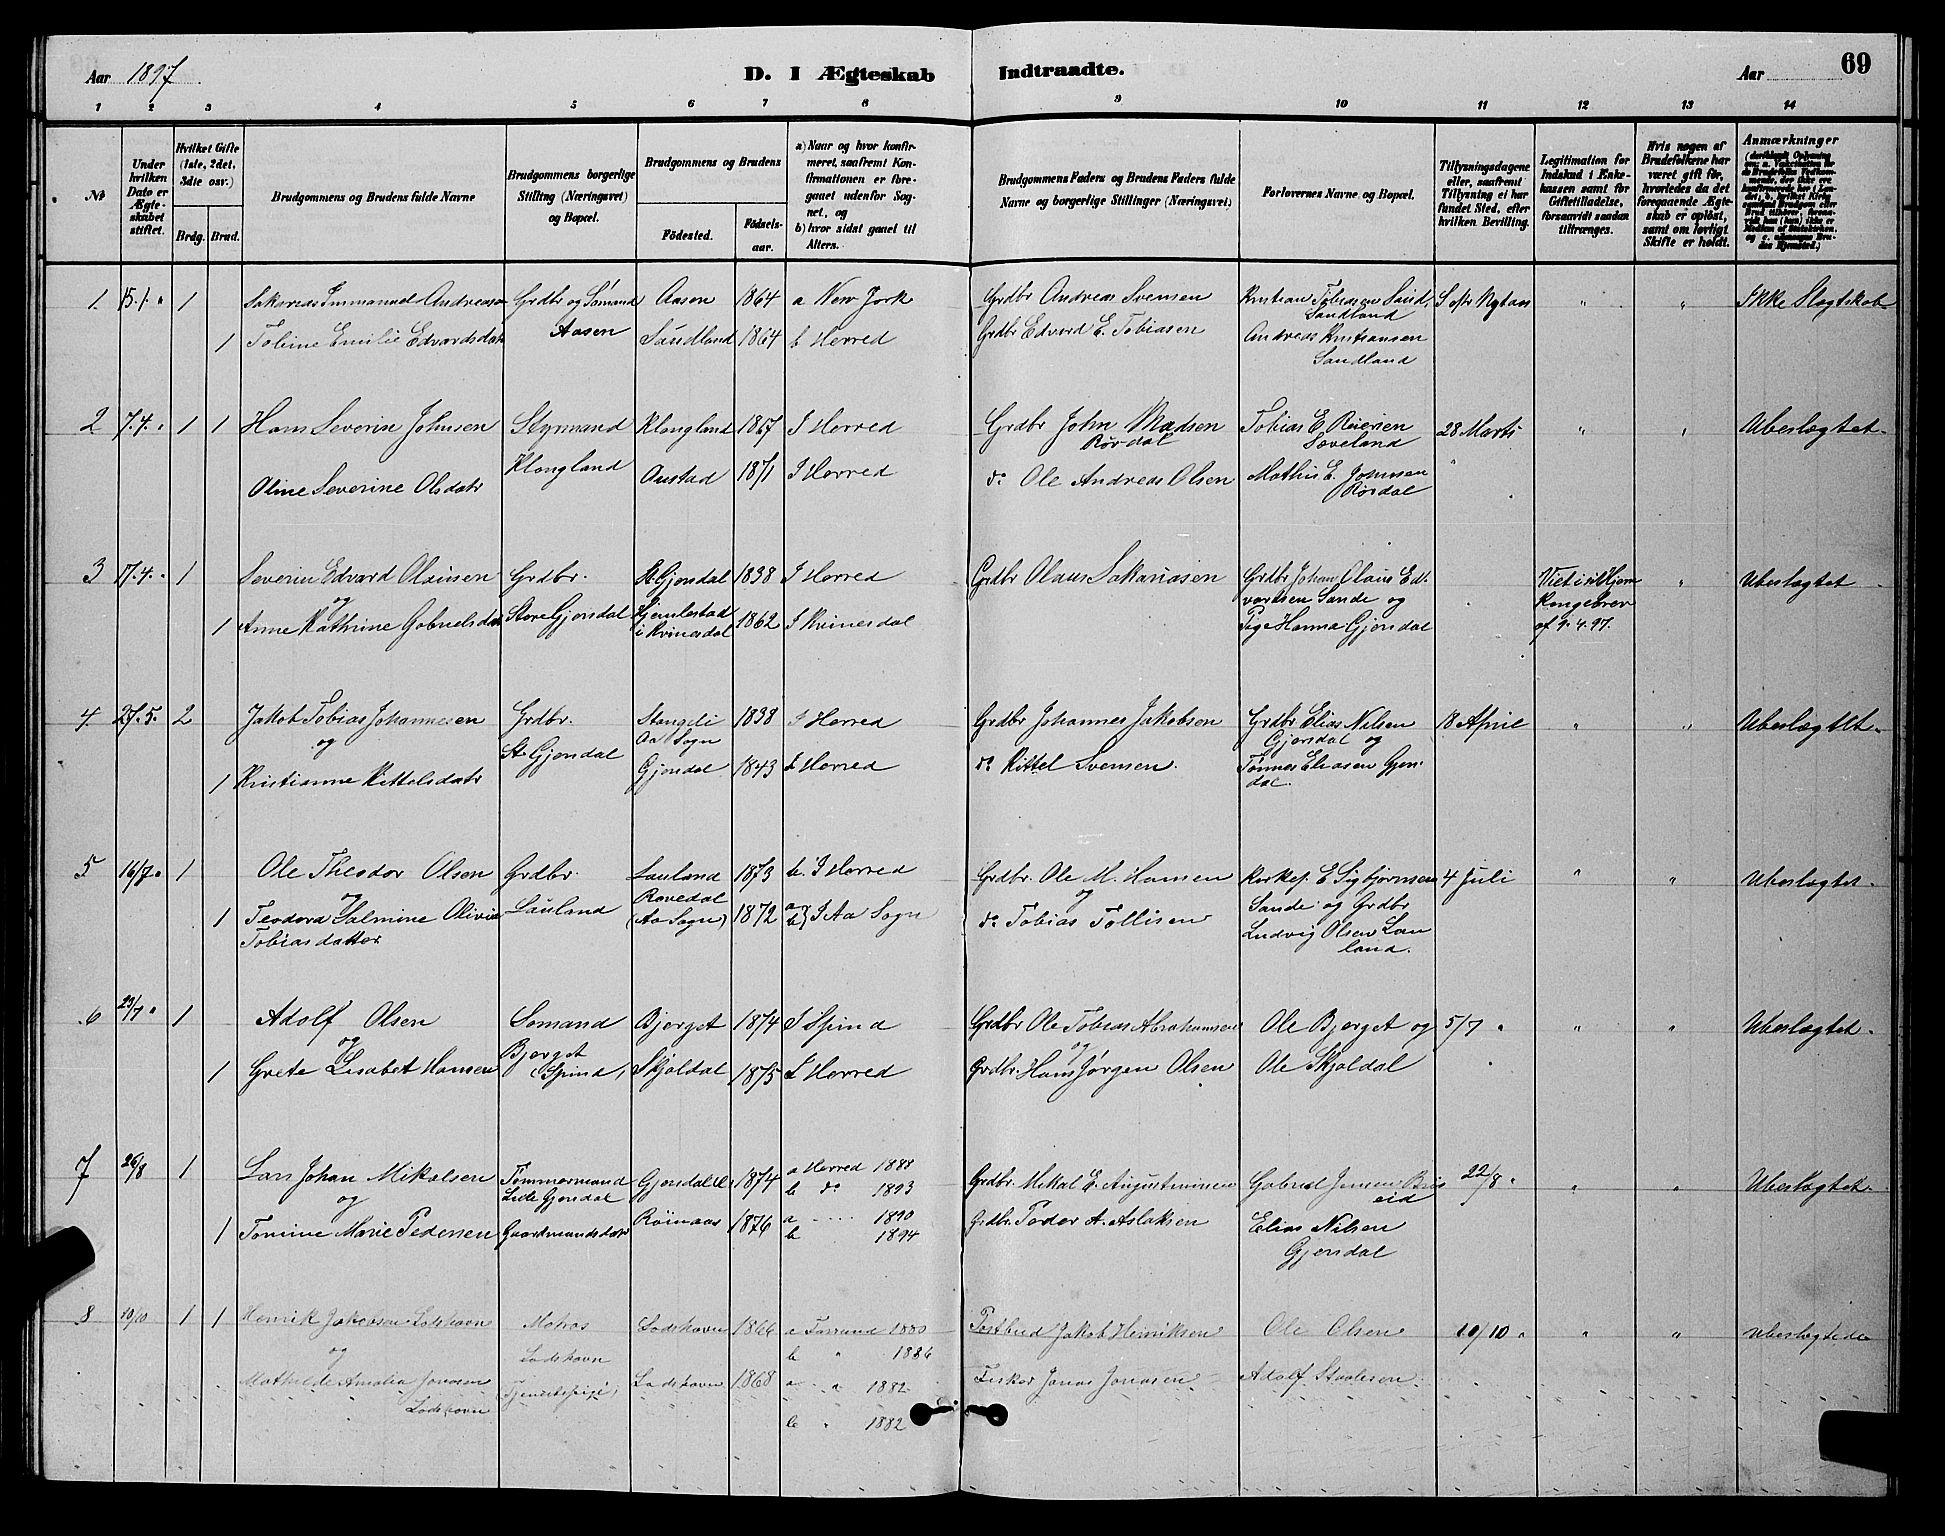 Aar 1897
D. I Ægteskab Indtraadte.
Aar
69
1 2 3 4 5 6 7 8 9 10 11 12 13 14
№
Under hvilken Dato er Ægteskabet stiftet.
Hvilket Gifte (1ste, 2det, 3die osv.)
Brdg. Brud.
Brudgommens og Brudens fulde Navne
Brudgommens borgerlige Stilling (Næringsvei) og Bopæl.
Brudgommens og Brudens
Fødested.
Fødselsaar.
a) Naar og hvor konfirmeret, saafremt Konfirmationen er foregaaet udenfor Sognet, og
b) hvor sidst gaaet til Alters.
Brudgommens Faders og Brudens Faders fulde Navne og borgerlige Stillinger (Næringsvei).
Forlovernes Navne og Bopæl.
Tillysningsdagene eller, saafremt Tillysning ei har fundet Sted, efter hvilken Bevilling.
Legitimation for Indskud i Enkekassen samt for Giftetilladelse, forsaavidt saadan tiltrænges.
Hvis nogen af Brudefolkene har været gift før, hvorledes da det foregaaende Ægteskab er opløst, samt om lovligt Skifte er holdt.
Anmærkninger
1 15.1. 1 Sakarias Immanuel Andreasen Grdbr og Sømand Aasen 1864 a New York Grdbr Andreas Svensen Kristian Tobiassen Sand Ikke Slægtskab
Aasen Sandland
1 Tobine Emilie Edvardsdatr Sandland 1864 b Herred Grdbr Edvard E. Tobiasen Andreas Kristiansen
Sandland
2 7.4. 1 1 Hans Severin Johnsen Styrmand Klongland 1867 I Herred Grdbr John Madsen Tobias E. Reiersen 28 Marts Ubeslægtet
Rørdal Loveland
Oline Severine Olsdatr Klongland Austad 1871 I Herred do Ole Andreas Olsen Mathis E. Johnsen
Rørdal
3 17.4. 1 Severin Edvard Olausen Grdbr. St. Gjersdal 1838 I Herred Grdbr Olaus Sakariasen Grdbr Johan Olaus Ed- Viet i sit Hjem Ubeslægtet
og vardsen Sande og Kongebrev
1 Anne Kathrine Gabrielsdatr Store Gjersdal i Kvinesdal 1862 I Kvinesdal Pige Hanna Gjersdal af 9.4.97.
4 27.5. 2 Jakob Tobias Johannesen Grdbr. Stangeli 1838 I Herred Grdbr Johannes Jakobsen Grdbr Elias Nilsen 18 April Ubeslægtet
og St. Gjersdal Aa Sogn Gjersdal og
1 Kristianne Kittelsdatr Gjersdal 1843 I Herred do Kittel Svensen Tønnes Eliasen Gjers-
dal.
5 16/7 1 Ole Theodor Olsen Grdbr. Lauland 1873 b. I Herred Grdbr. Ole M. Hansen Kirkes. E Sigbjørnsen 4 Juli Ubeslægtet
og Lauland Rovedal og Sande og Grdbr
1 Teodora Salmine Olivia (Aa Sogn) 1872 a b} I Aa Sogn do Tobias Tollisen Ludvig Olsen Lau-
Tobiasdatter land.
6 23/7 1 Adolf Olsen Sømand Bjørget 1874 I Spind Grdbr Ole Tobias Abrahamsen Ole Bjørget og 5/7 Ubeslægtet
og Bjørget og
1 Grete Lisabet Hansen (Spind) Skjoldal 1875 I Herred Grdbr. Hans Jørgen Olsen Ole Skjoldal
7 26/8 1 Lars Johan Mikalsen Tømmermand Gjersdal 1874 a Herred 1888 Grdbr. Mikal E. Augustinusen Gabriel Jensen 22/8 Ubeslægtet
og Lille Gjersdal b do 1893 eid
1 Tomine Marie Pedersen Gaardmandsdatr Røinaas 1876 a 1890 Grdbr. Peder A. Aslaksen Elias Nilsen
b 1894 Gjersdal
8 10/10 1 1 Henrik Jakobsen Lodshavn Matros Lodshavn 1866 a Farsund 1880 Postbud Jakob Henriksen Ole Olsen 10/10 ubeslægtede
og Lodshavn b " 1886
Mathilde Amalia Jonasen (Tjenestepige) Lodshavn 1868 a " 1882 Fisker Jonas Jonasen Adolf Staalesen
Lodshavn b " 1882